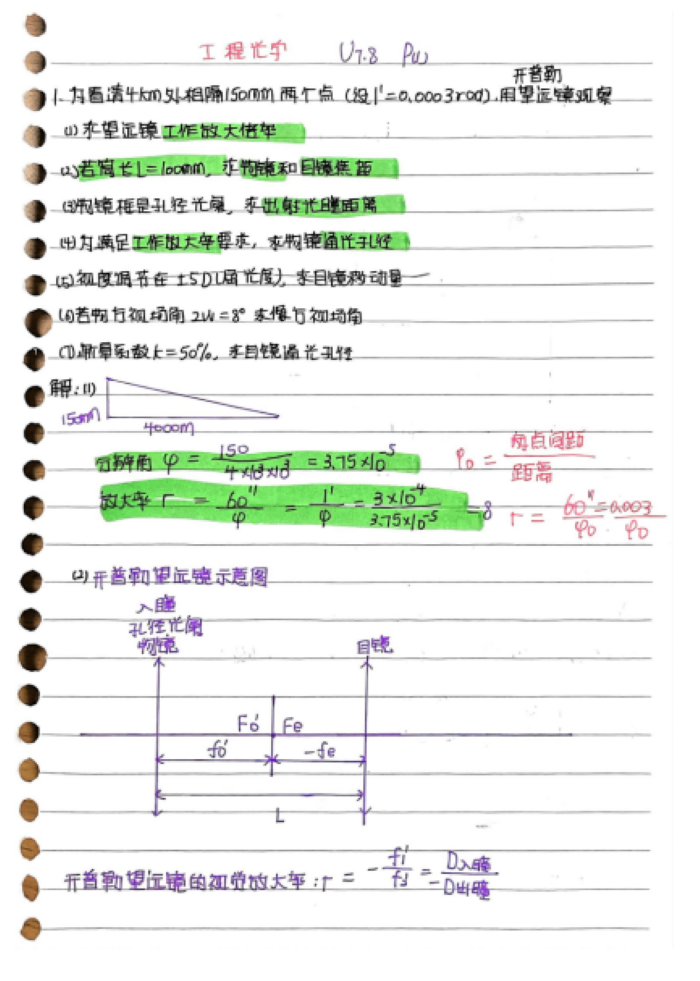 工程光学 U7.8 P(1)
开普勒
1.为看清4km外相隔150mm两个点(设1'=0.0003rad).用望远镜观察
(1)求望远镜工作放大倍率
(2)若筒长L=100mm,求物镜和目镜焦距
(3)物镜框是孔径光阑,求出射光瞳距离
(4)为满足工作放大率要求,求物镜通光孔径
(5)视度调节在±5D(屈光度),求目镜移动量
(6)若物方视场角2W=8°求像方视场角
(7)渐晕系数K=50%,求目镜通光孔径
解:(1)
150mm
4000M
分辨角 φ = 150/4×10³×10³ = 3.75×10⁻⁵
φ₀ = 两点间距/距离
放大率 r = 60"/φ = 1'/φ = 3×10⁻⁴/3.75×10⁻⁵ =8
r = 60"/φ₀ = 0.003/φ₀
(2)开普勒望远镜示意图
入瞳
孔径光阑
物镜 目镜
Fo' Fe
fo' -fe
L
开普勒望远镜的视觉放大率:r = -f1'/f2' = D入瞳/-D出瞳